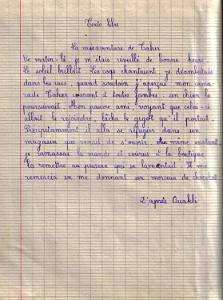 Texte libre
La mésaventure de Taher
Ce matin-là, je m'étais réveillé de bonne heure.
Le soleil brillait. Les coqs chantaient, je déambulais
dans les rues, quand soudain j'aperçus mon cama-
rade Taher courant à toutes jambes, un chien le
poursuivait. Mon pauvre ami, voyant que celui-ci
allait le rejoindre, lâcha le gigot qu'il portait.
Précipitamment il alla se réfugier dans un
magasin que venait de s'ouvrir. Au même instant
je ramassai la viande et courus à la boutique
la remettre au pauvre qui se lamentait. Il me
remercia en me donnant un morceau de chocolat
D'après